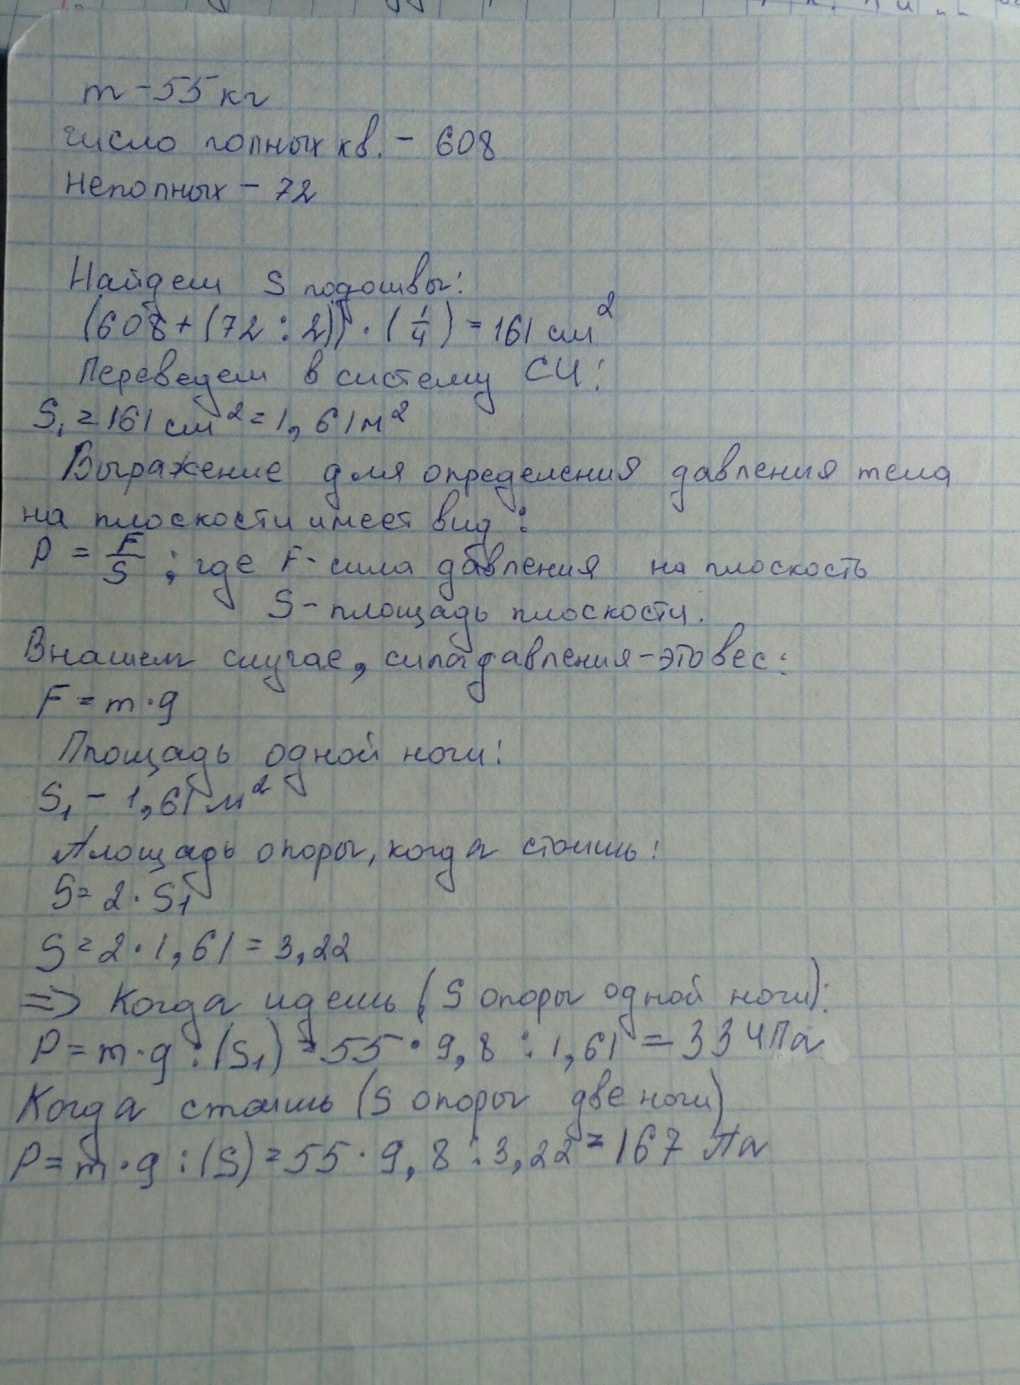 m - 55 кг
число полных кв. - 608
Неполных - 72
Найдем S подошвы:
(608 + (72 : 2)) · (1/4) = 161 см²
Переведем в систему СИ:
S₁ = 161 см² = 1,61 м²
Выражение для определения давления тела
на плоскости имеет вид:
P = F/S ; где F - сила давления на плоскость
S - площадь плоскости.
В нашем случае, сила давления - это вес:
F = m · g
Площадь одной ноги:
S₁ - 1,61 м²
Площадь опоры, когда стоишь:
S = 2 · S₁
S = 2 · 1,61 = 3,22
=> Когда идешь (S опоры одной ноги):
P = m · g : (S₁) = 55 · 9,8 : 1,61 = 334 Па
Когда стоишь (S опоры две ноги)
P = m · g : (S) = 55 · 9,8 : 3,22 = 167 Па